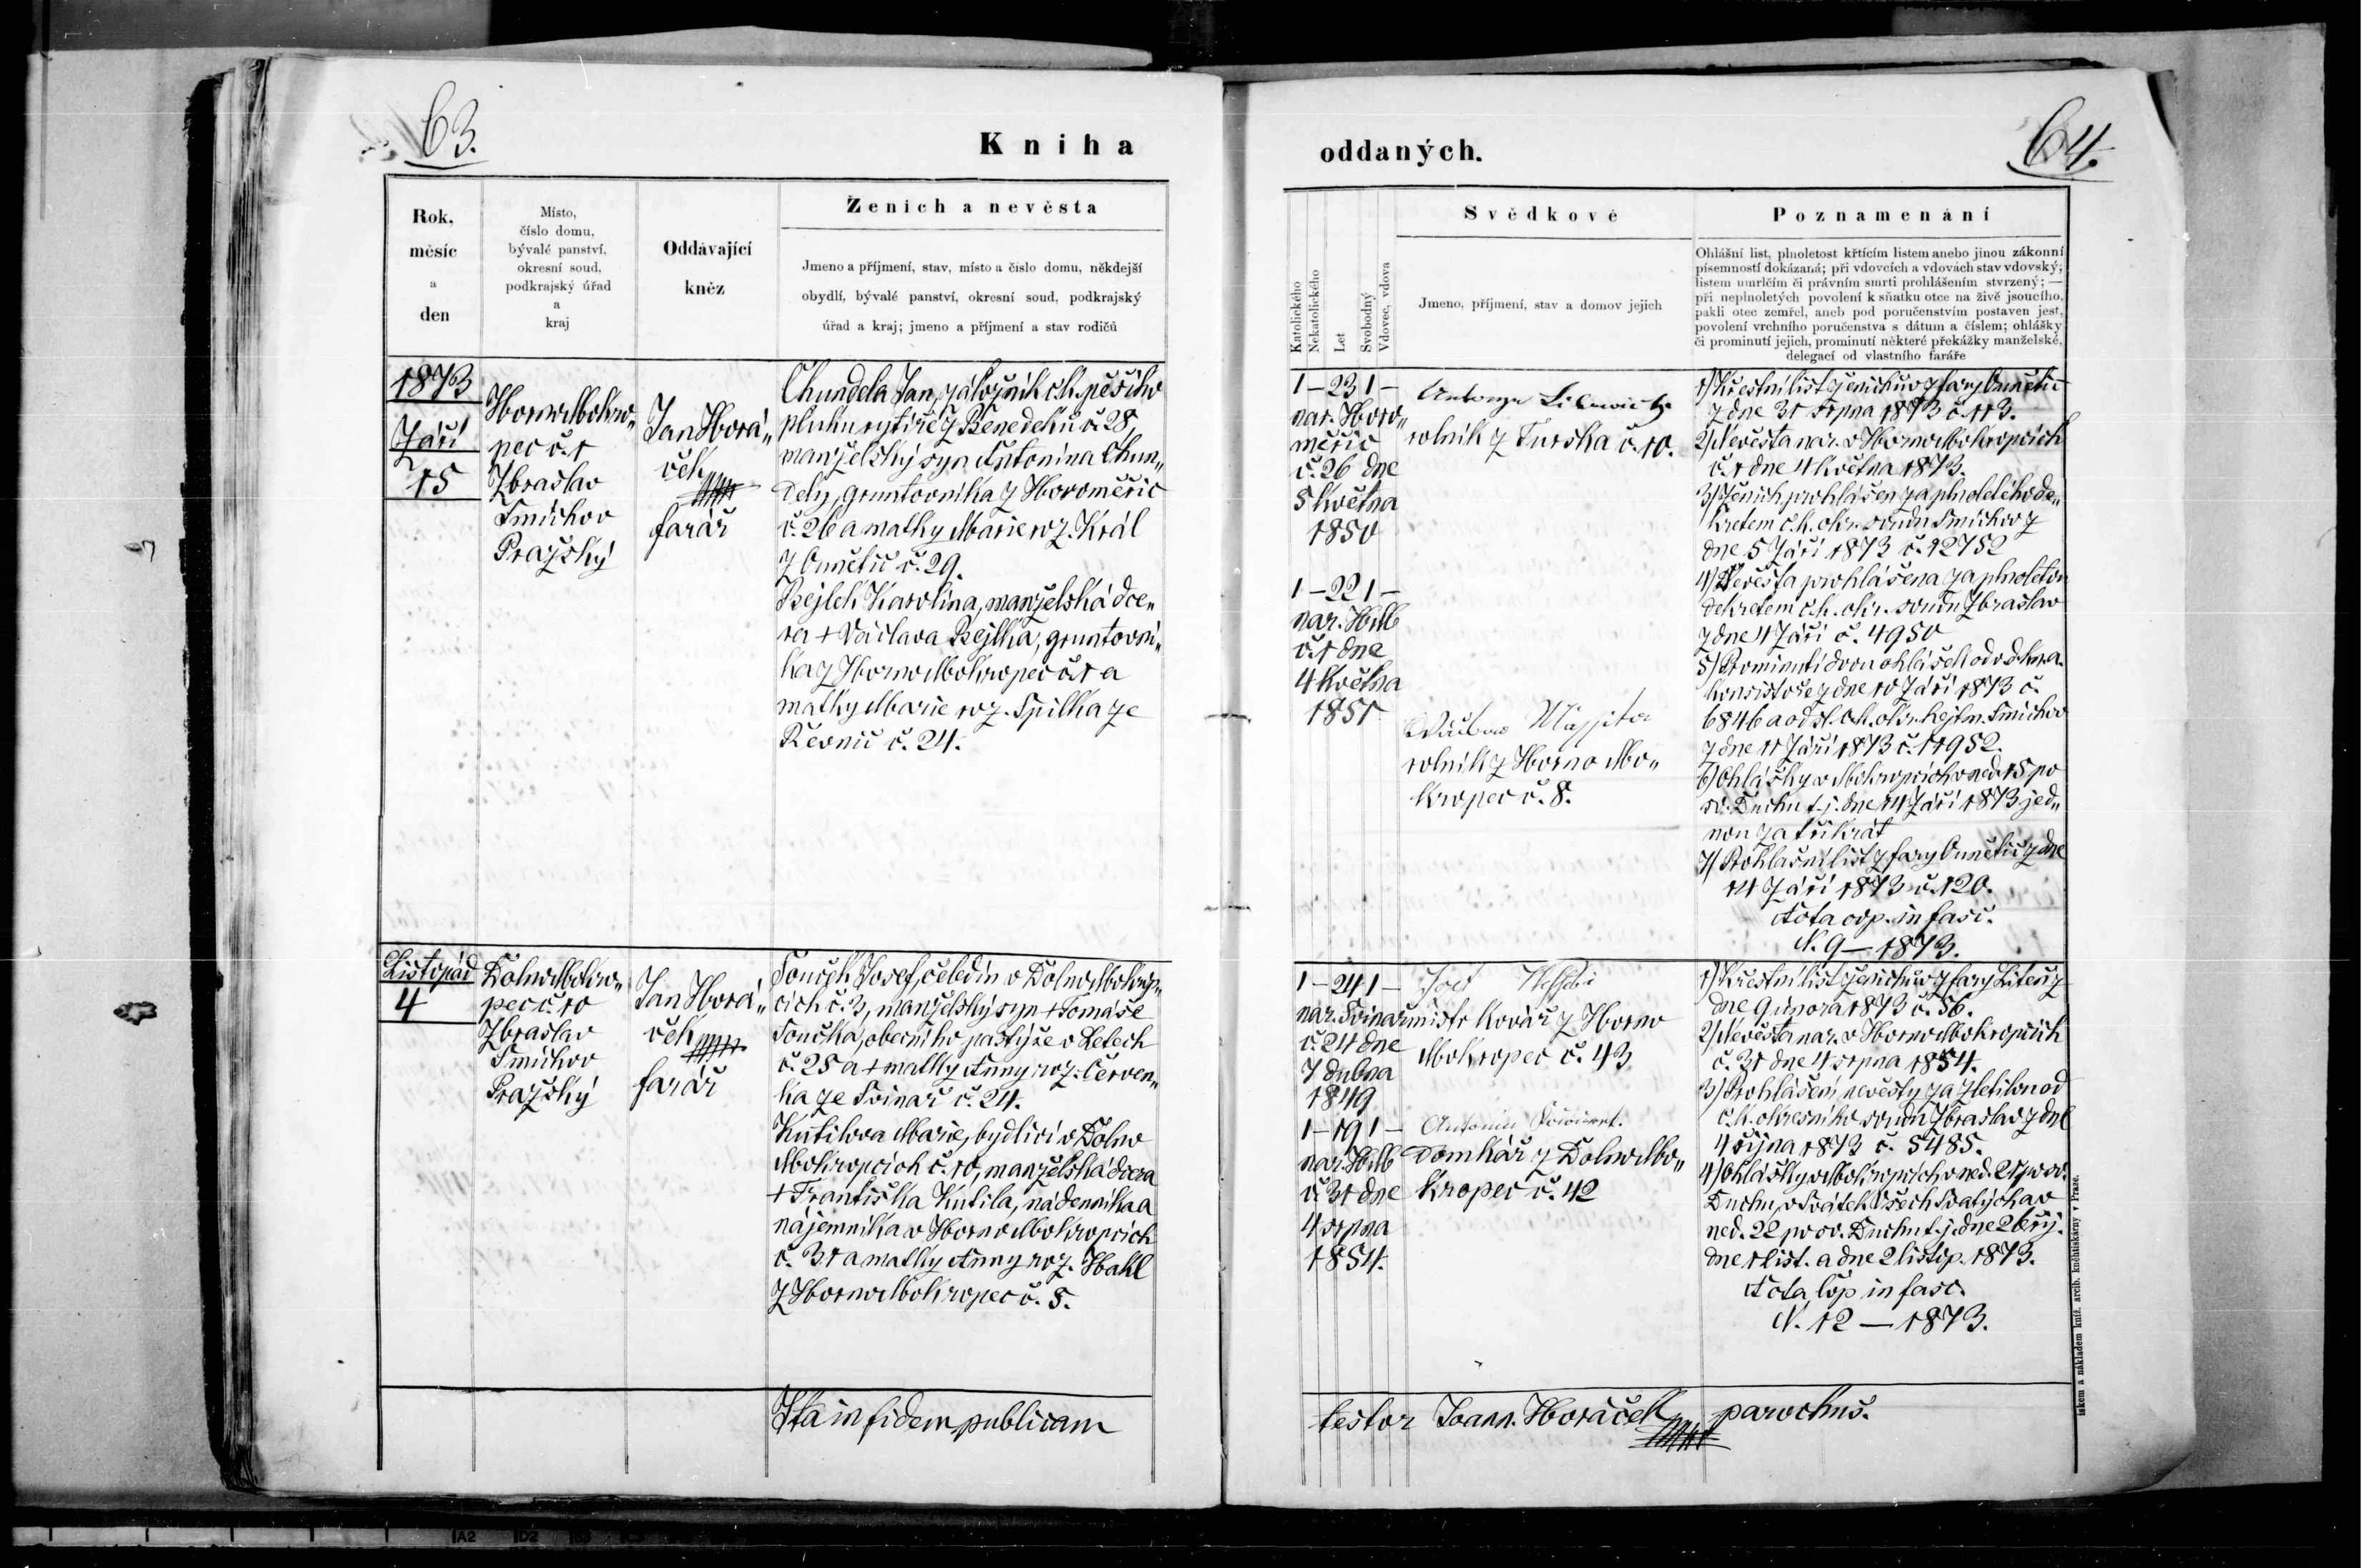 63.
Kniha
Rok, měsíc a den
Místo, číslo domu, bývalé panství, okresní soud, podkrajský úřad a kraj
Oddávající kněz
Ženich a nevěsta
Jmeno a příjmení, stav, místo a číslo domu, někdejší
obydlí, bývalé panství, okresní soud, podkrajský
úřad a kraj; jmeno a příjmení a stav rodičů
1873
Září
15
Hornomokro„
pec č. 1
Zbraslav
Smíchov
Pražský
Jan Horá„
ček
farář
Chundela Jan, záložník c.k. pěšího
pluku rytíře z Benedeků č. 28,
manželský syn Antonína Chun„
dely, gruntovníka z Horoměřic
č. 26 a matky Marie roz. Král
z Ounětic č. 29.
Bejlek Karolína, manželská dce„
ra + Václava Bejlka, gruntovní„
ka z Hornomokropec č. 1 a
matky Marie roz. Spilka ze
Řevnic č. 24.
Listopad
4
Dolnomokro„
pec č. 10
Zbraslav
Smíchov
Pražský
Jan Horá„
ček
farář
Souček Josef, čeledín v Dolnomokrop„
cích č. 3, manželský syn + Tomáše
Součka, obecního pastýře v Letech
č. 25 a + matky Anny roz. Červen„
ka ze Svinař č. 24.
Kutilova Marie, bydlící v Dolno
Mokropcích č. 10, manželská dcera
+ Františka Kutila, nádenníka a
nájemníka v Hornomokropcích
č. 31 a matky Anny roz. Hakl
z Hornomokropec č. 5.
Ita in fidem publicam
64.
oddaných.
Katolického
Nekatolického
Let
Svobodný
Vdovec, vdova
Svědkové
Jmeno, příjmení, stav a domov jejich
Poznamenání
Ohlášní list, plnoletost křtícím listem anebo jinou zákonní
písemností dokázaná; při vdovcích a vdovách stav vdovský,
listem umrlčím či právním smrti prohlášením stvrzený; —
při neplnoletých povolení k sňatku otce na živě jsoucího,
pakli otec zemřel, aneb pod poručenstvím postaven jest,
povolení vrchního poručenstva s dátum a číslem; ohlášky
či prominutí jejich, prominutí některé překážky manželské,
delegací od vlastního faráře
1 – 23 1 –
nar. Horo„
měřic
č. 26 dne
5 května
1850
1 – 22 1 –
nar. HMb
č. 1 dne
4 května
1851
rolník z Turska č. 10.
rolník z Horno Mo„
kropec č. 8.
1) Křestní list ženichův z fary Ounětic
z dne 31 srpna 1873 č. 113.
2) Nevěsta nar. v Hornomokropcích
č. 1 dne 4 května 1873.
3) Ženich prohlášen za plnoletého de„
kretem c.k. okr. soudu Smíchov z
dne 5 Září 1873 č. 12752
4) Nevěsta prohlášena za plnoletou
dekretem c.k. okr. soudu Zbraslav
z dne 4 Září č. 4950
5) Prominutí dvou ohlášek od vdkna.
konsistoře z dne 10 Září 1873 č.
6846 a od sl. c.k. okr. hejtm. Smíchov
z dne 11 Září 1873 č. 11952.
6) Ohlášky v Mokropcích v ned. 15 po
sv. Duchu t. j. dne 14 Září 1873 jed„
nou za třikrát
7) Prohlašní list z fary Ounětic z dne
14 Září 1873 č. 120.
Acta cop. in fasc.
N. 9 — 1873.
1 – 24 1 –
nar. Svinař
č. 24 dne
7 dubna
1849
1 – 19 1 –
nar. HMb
č. 31 dne
4 srpna
1854.
mistr kovář z Horno
Mokropec č. 43
Antonín
Domkář z Dolnomo„
kropec č. 42
1) Křestní list ženichův z fary Liteň z
dne 9 února 1873 č. 56.
2) Nevěsta nar. v Hornomokropcích
č. 31 dne 4 srpna 1854.
3) Prohlášení nevěsty za zletilou od
c.k. okresního soudu Zbraslav z dne
4 října 1873 č. 5485.
4) Ohlášky v Mokropcích v ned. 21 po sv.
Duchu, v Svátek Všech Svatých a v
ned. 22 po sv. Duchu t. j. dne 26 říj.
dne 1 list. a dne 2 listop. 1873.
Acta cop in fasc.
N. 12 — 1873.
testor Joann. Horáček parochus.
iskem a nákladem kníž. arcib. knihtiskárny v Praze.